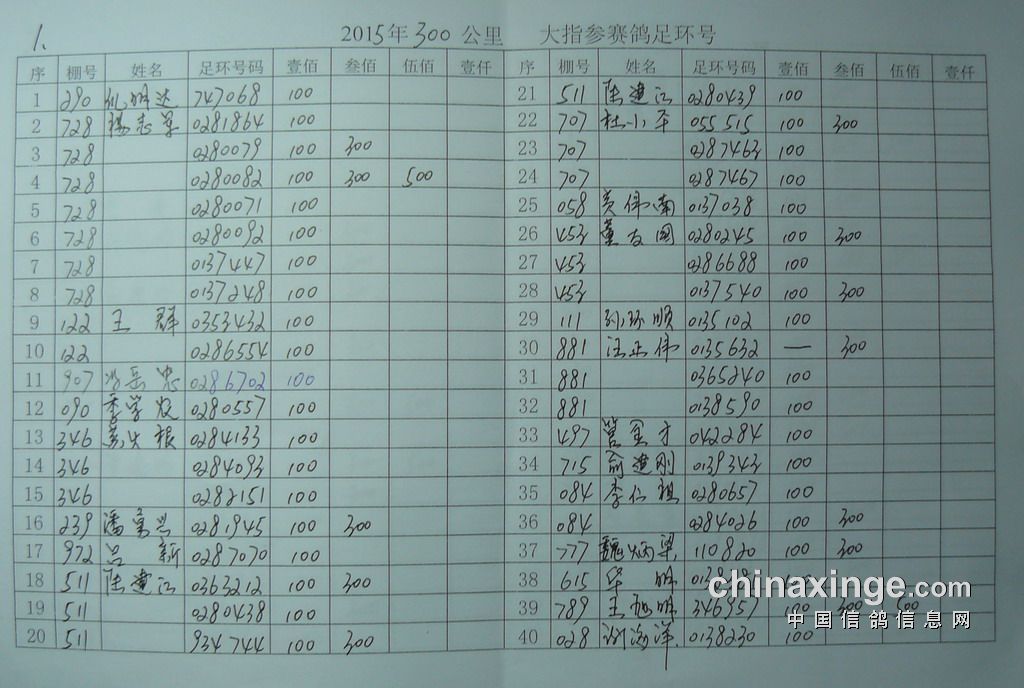 1.
2015年300公里 大指参赛鸽足环号
序 棚号 姓名 足环号码 壹佰 叁佰 伍佰 壹仟
1 290 747068 100
2 728 杨志军 0281864 100
3 728 0280079 100 300
4 728 0280082 100 300 500
5 728 0280071 100
6 728 0280092 100
7 728 0137447 100
8 728 0137248 100
9 122 王群 0353432 100
10 122 0286554 100
11 907 0286702 100
12 090 李学文 0280557 100
13 346 0284133 100
14 346 0284093 100
15 346 0282151 100
16 239 潘 0281945 100 300
17 972 吕新 0287070 100
18 511 陆建江 0363212 100 300
19 511 0280438 100
20 511 934744 100 300
序 棚号 姓名 足环号码 壹佰 叁佰 伍佰 壹仟
21 511 陆建江 0280439 100
22 707 杜小平 055515 100 300
23 707 0287463 100
24 707 0287467 100
25 058 黄伟南 0137038 100
26 453 董友国 0280245 100 300
27 453 0286688 100
28 453 0137540 100 300
29 111 孙环顺 0135102 100
30 881 汪正伟 0135632 — 300
31 881 0365240 100
32 881 0138590 100
33 497 管金才 042284 100
34 715 俞建刚 0139343 100
35 084 李仁祖 0280657 100
36 084 0284026 100 300
37 777 魏炳梁 110820 100 300
38 615 华明
39 789 王旭明 346957 100 300 500
40 028 谢海洋 0138230 100
chinaxinge.com
中国信鸽信息网